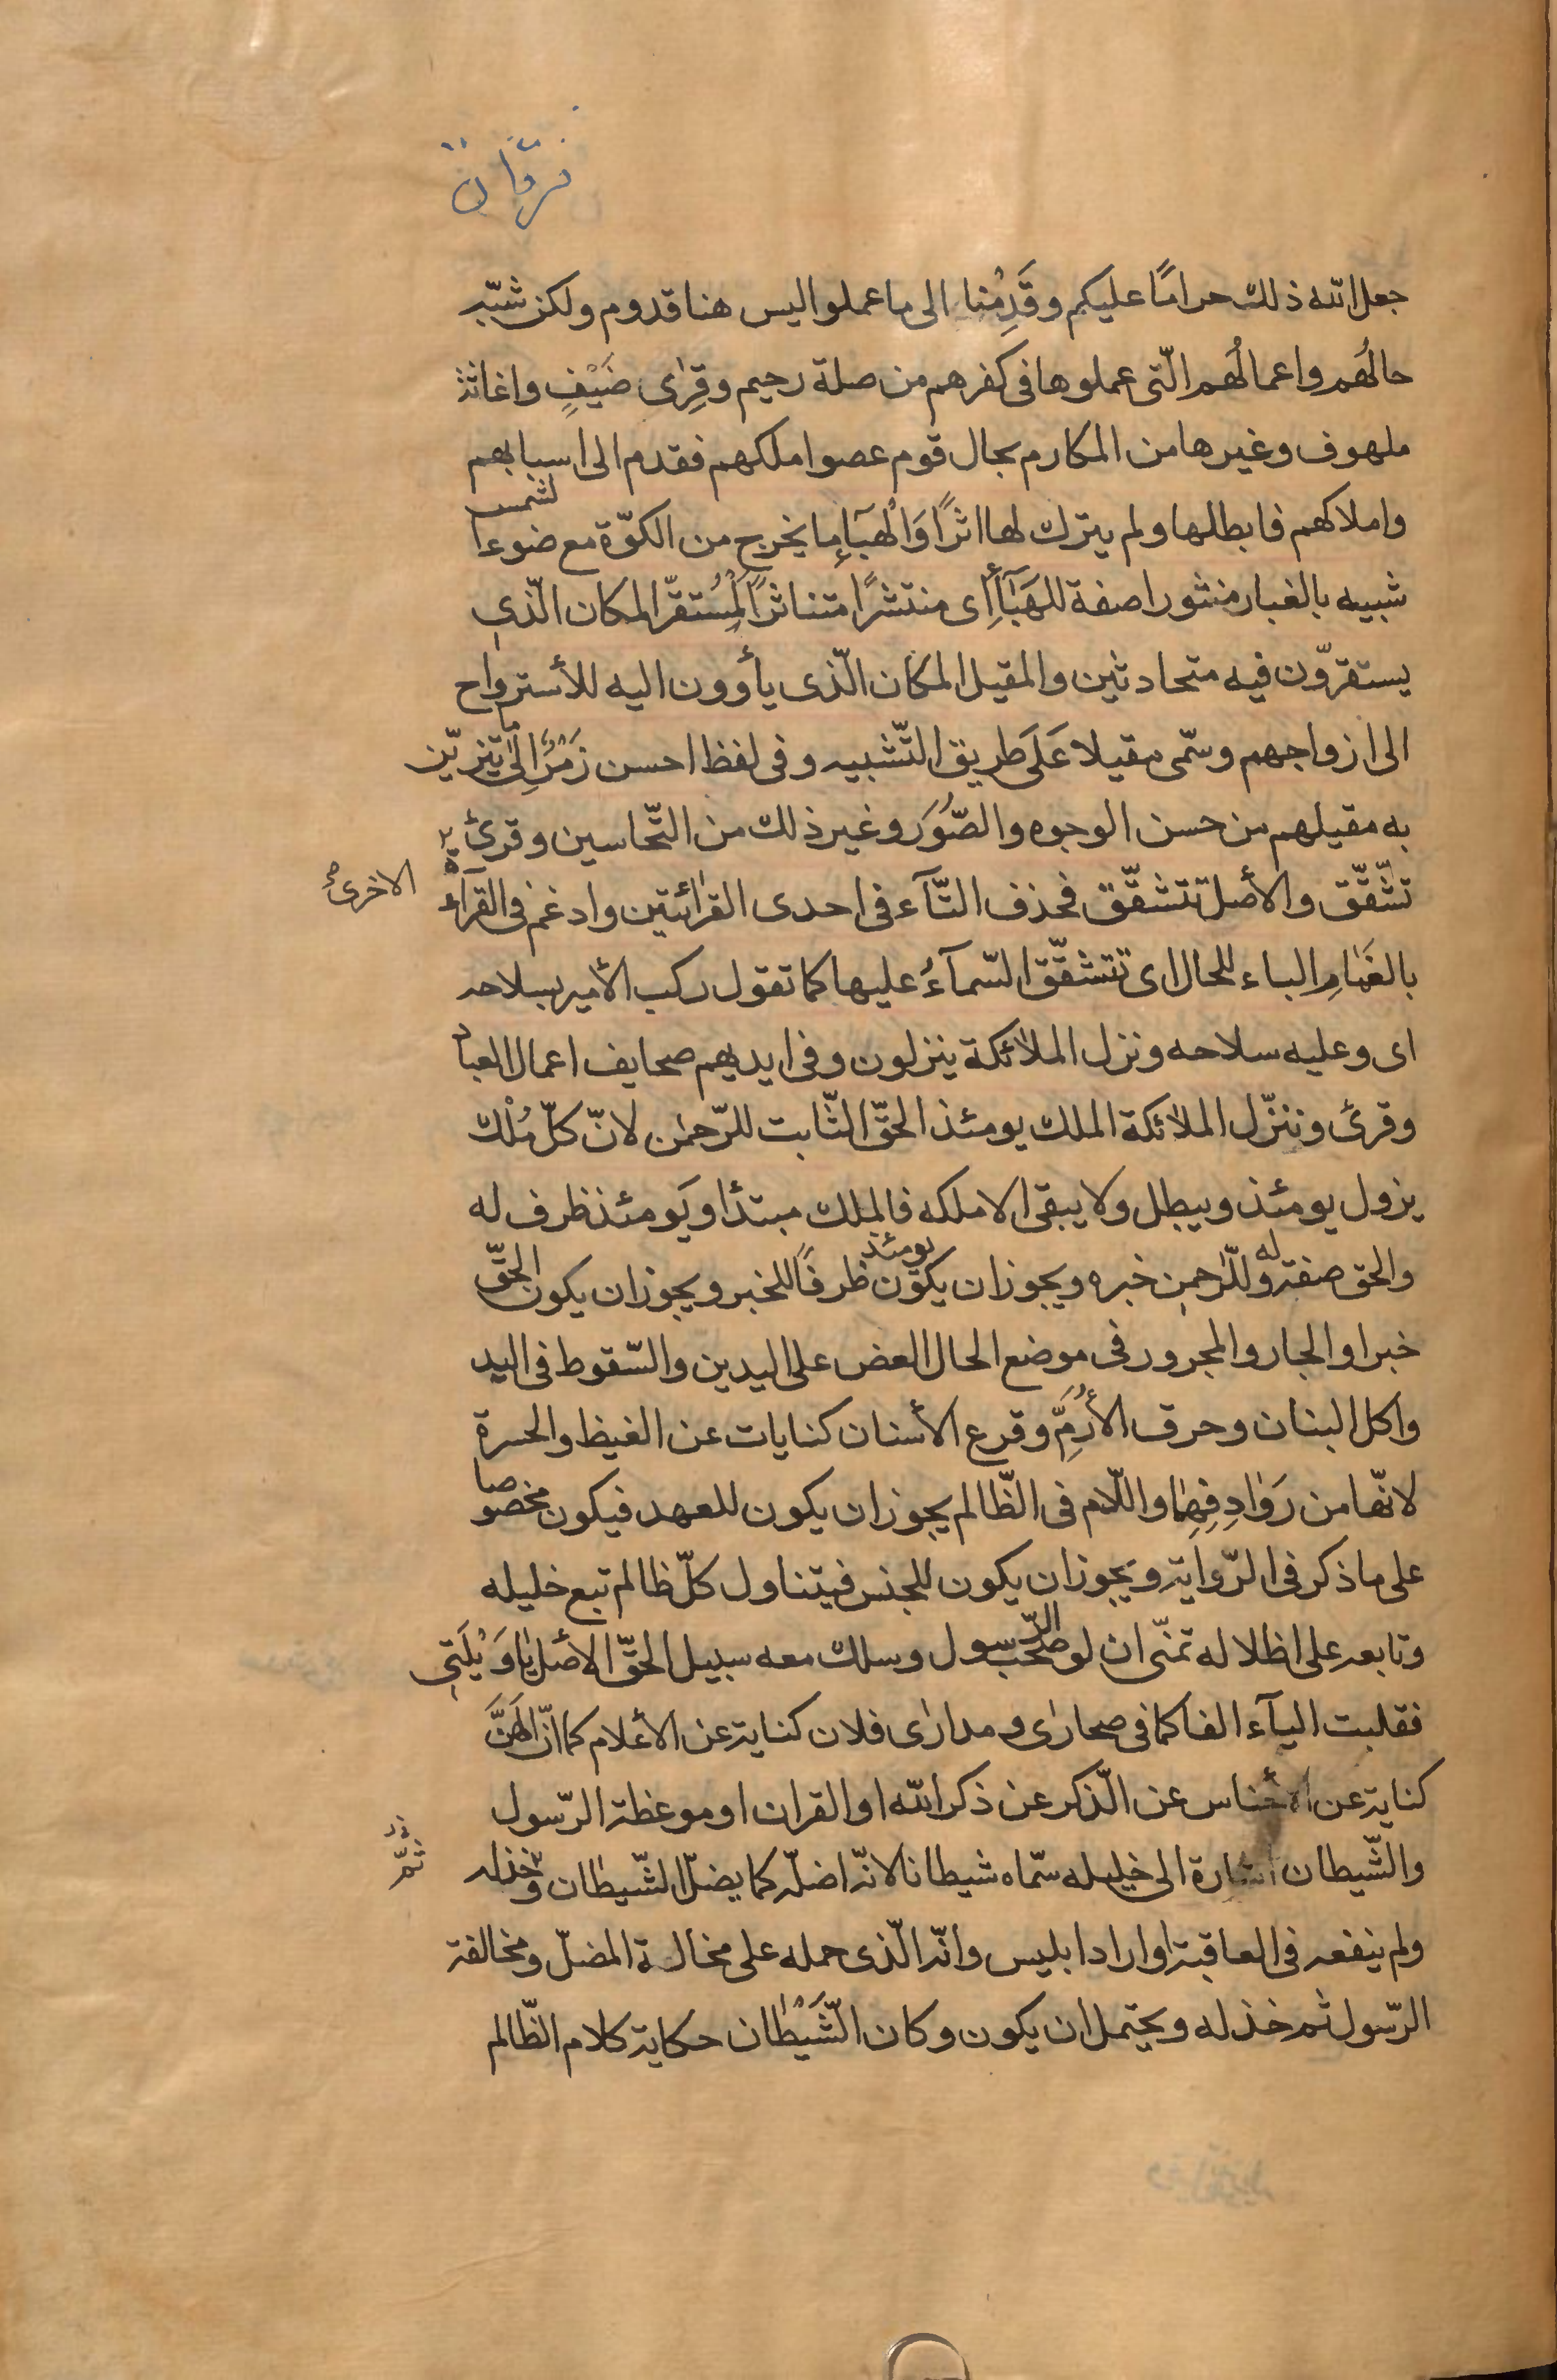 فرقان
جعل الله ذلك حرامًا عليكم وقَدِمْنا الى ما عملوا ليس هنا قدوم ولكن شبّه
حالُهُم واعمالُهُم الّتى عملوها فى كفرهم من صلة رحيم وقِرٰى ضَيْفٍ واغاثة
ملهوف وغيرها من المكارم بحال قوم عصوا ملكهم فقدم الى اسبابهم
واملاكهم فابطلها ولم يترك لها اثرًا وَالْهَبَآءِ ما يخرج من الكوّة مع ضوء الشمس
شبيه بالغبار منثورا صفة للهَبَآءِ اى منتشرًا متناثرًا الْمُسْتقرّ المكان الّذى
يستقرّون فيه متحادثين والمقيل المكان الّذى يأوون اليه للأسترواح
الى ازواجهم وسمّى مقيلا عَلَى طريق التّشبيه وفى لفظ احسن رَمْزٌ الىٰ ما يتزيّن
به مقيلهم من حسن الوجوه والصُّوَر وغير ذلك من التّحاسين وقرئ
تشّقّق والأصل تتشقّق فحذف التّآء فى احدى القرائتين وادغم فى القراءة
الاخرى
بالغَمٰامِ الباء للحال اى تتشقّق السّمآءُ عليها كما تقول ركب الأمير بسلاحه
اى وعليه سلاحه ونزل الملائكة ينزلون وفى ايديهم صحايف اعمال العباد
وقرئ وننزّل الملائكة الملك يومئذ الحقّ الثّابت للرّحمٰن لانّ كلّ مُلْك
يزول يومئذ ويبطل ولا يبقى الا ملكه فالملك مبتدأ ويَومئذ ظرف له
والحق صفة له وللرّحمن خبره ويجوز ان يكون يومئذ ظرفًا للخبر ويجوز ان يكون الحقّ
خبرا والجار والمجرور فى موضع الحال العض على اليدين والسّقوط فى اليد
واكل البنان وحرق الأُرَّمِ وقرع الأسنان كنايات عن الغيظ والحسرة
لانّها من رَوٰادِفِهِمٰا واللّام فى الظّالم يجوز ان يكون للعهد فيكون مخصوصا
على ما ذكر فى الرّواية ويجوز ان يكون للجنس فيتناول كلّ ظالم تبع خليله
وتابعه على اظلاله تمنّى ان لو صحب الرّسول وسلك معه سبيل الحقّ الاصل يٰا وَيْلَتِى
فقلبت اليآء الفا كما فى صحارٰى ومدارٰى فلان كناية عن الأعلام كما انّ الْهَنَّ
كناية عن الأجناس عن الّذكر عن ذكر الله او القران او موعظة الرّسول
والشّيطان اشارة الى خليله سمّاه شيطانا لانّه اضلّه كما يضلّ الشّيطٰان وخذله
ثمّ
ولم ينفعه فى العاقبة او اراد ابليس وانّه الّذى حمله على مخالّة المضلّ ومخالفة
الرّسول ثم خذله ويحتمل ان يكون وكان الّشَيْطٰان حكاية كلام الظّالم